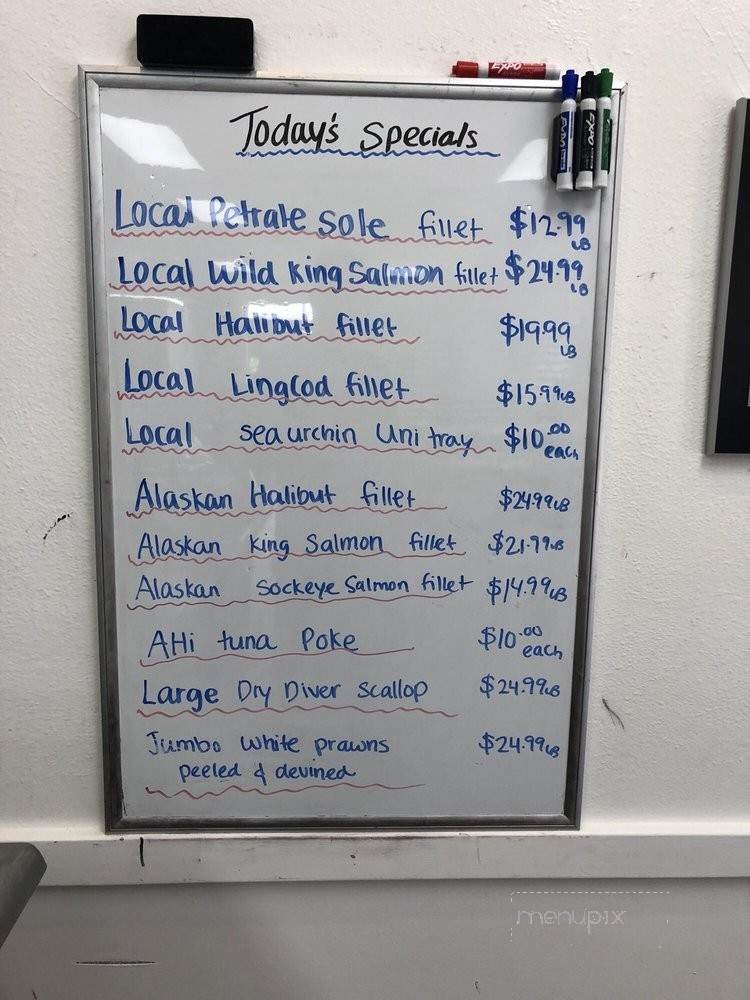 EXPO
EXPO
Today's Specials
Local Petrale Sole fillet $12.99 LB
Local Wild King Salmon fillet $24.99 LB
Local Halibut fillet $19.99 LB
Local Lingcod fillet $15.99 LB
Local sea urchin Uni tray $10.00 each
Alaskan Halibut fillet $24.99 LB
Alaskan King Salmon fillet $21.99 LB
Alaskan Sockeye Salmon fillet $14.99 LB
AHi tuna Poke $10.00 each
Large Dry Diver Scallop $24.99 LB
Jumbo white prawns $24.99 LB
peeled & devined
menupix